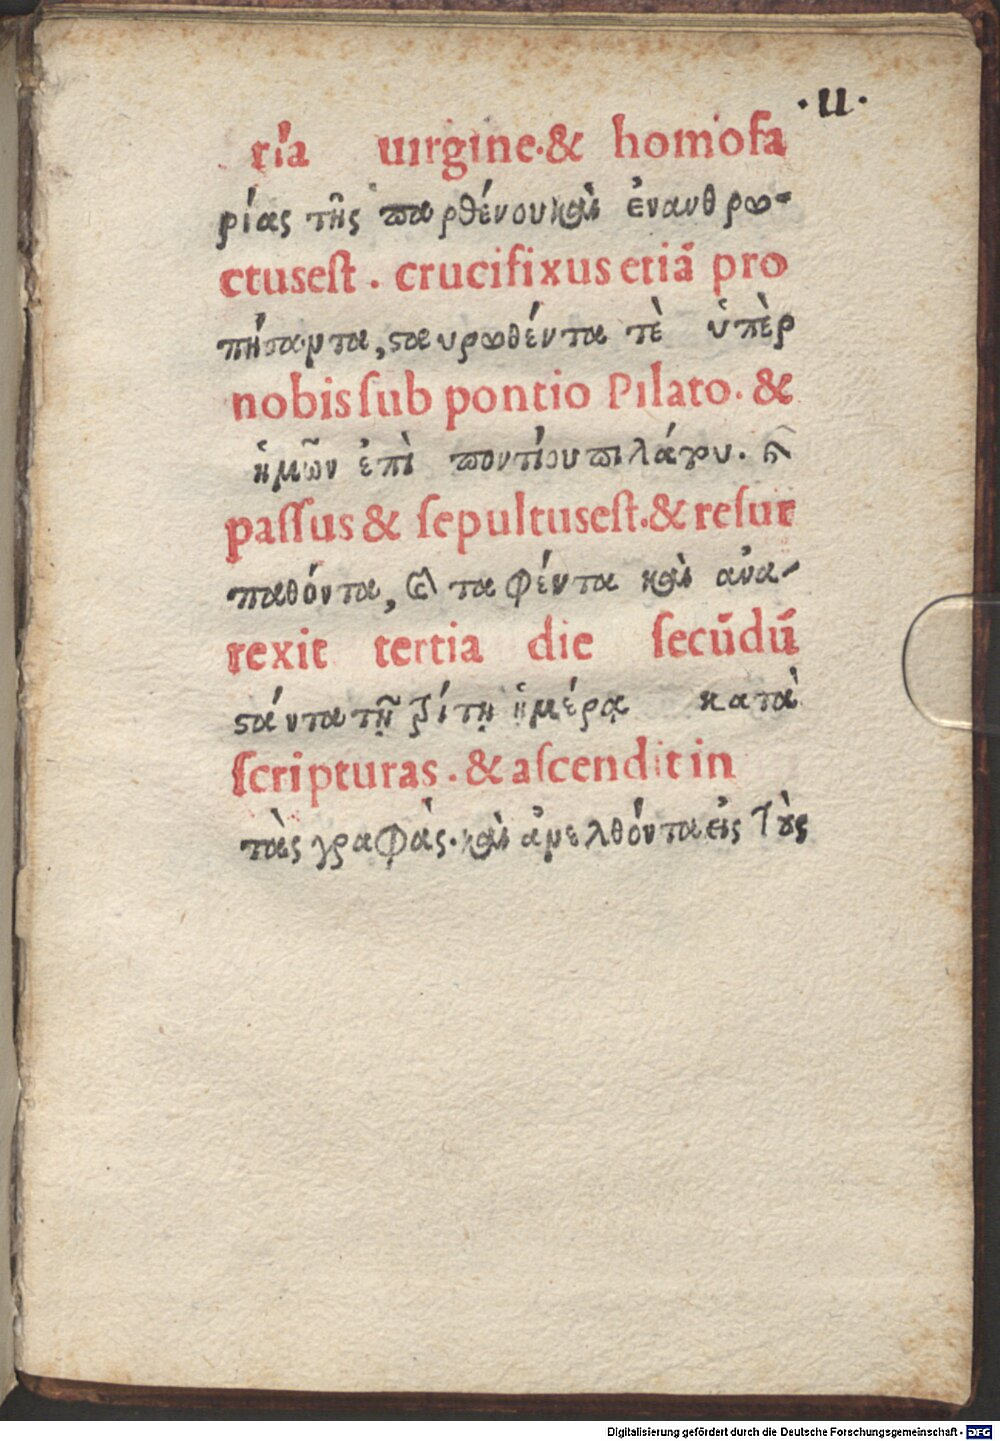 ·u·
ria uirgine·& homofa
ρίας τῆς παρθένου καὶ ἐνανθρω-
ctusest . crucifixus etiã pro
πήσαντα, ϛαυρωθέντα τὲ ὑπὲρ
nobis ſub pontio Pilato. &
ἡμῶν ἐπὶ ποντίου πιλάτου. ϗ
paſſus & ſepultusest.& reſur
παθόντα, ϗ ταφέντα καὶ ἀνα-
rexit tertia die ſecũdũ
ϛάντα τῇ τρίτῃ ἡμέρᾳ κατὰ
ſcripturas . & aſcendit in
τὰς γραφὰς. καὶ ἀνελθόντα εἰς τοὺς
Digitalisierung gefördert durch die Deutsche Forschungsgemeinschaft - DFG